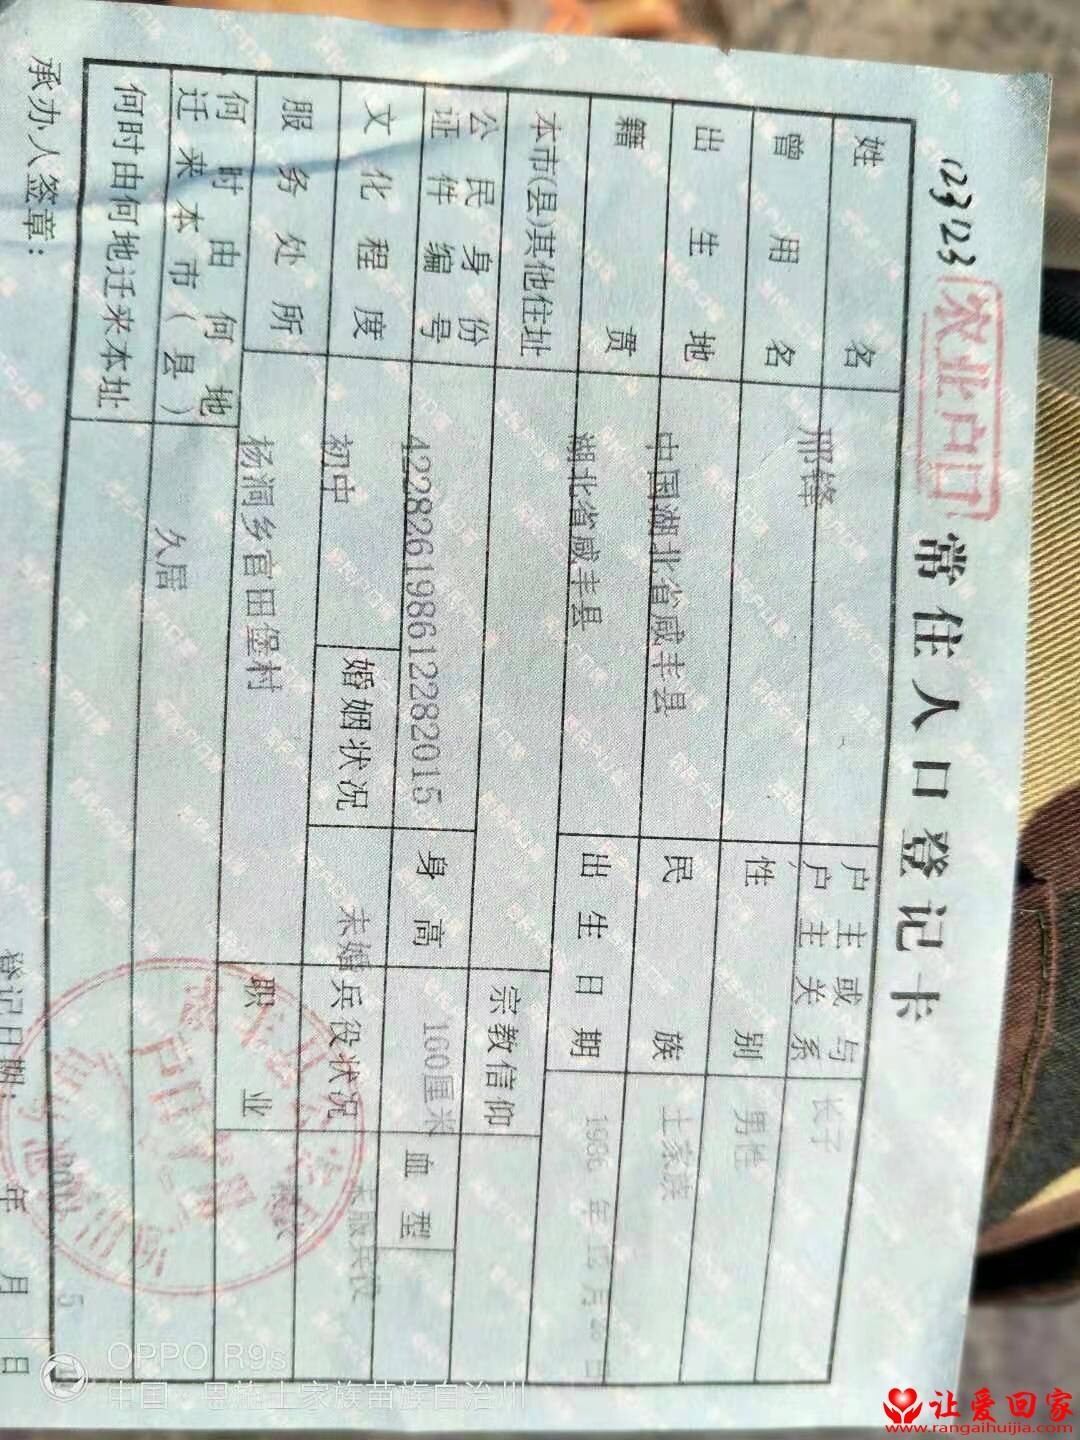 12323
农业户口
常住人口登记卡
姓名 邢锋 户主或与户主关系 长子
曾用名 性别 男性
出生地 中国湖北省咸丰县 民族 土家族
籍贯 湖北省咸丰县 出生日期 1986年12月28日
本市(县)其他住址 宗教信仰
公民身份证件编号 422826198612282015 身高 160厘米 血型
文化程度 初中 婚姻状况 未婚 兵役状况 未服兵役
服务处所 杨洞乡官田堡村 职业
何时由何地迁来本市(县) 久居
何时由何地迁来本址
承办人签章: 登记日期: 年 月 日
OPPO R9s
中国·恩施土家族苗族自治州
让爱回家
www.rangaihuijia.com